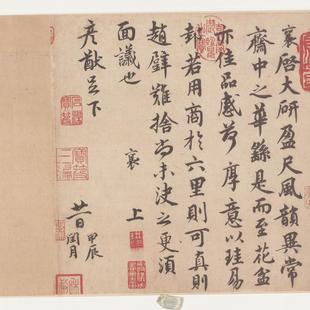 襄啓大研盈尺風韻異常
齋中之華緣是而至花盆
亦佳品感荷厚意以珪易
邽若用商於六里則可真則
趙璧難捨尚未決之更須
面議也 襄 上
彥猷足下
廿一日 甲辰閏月